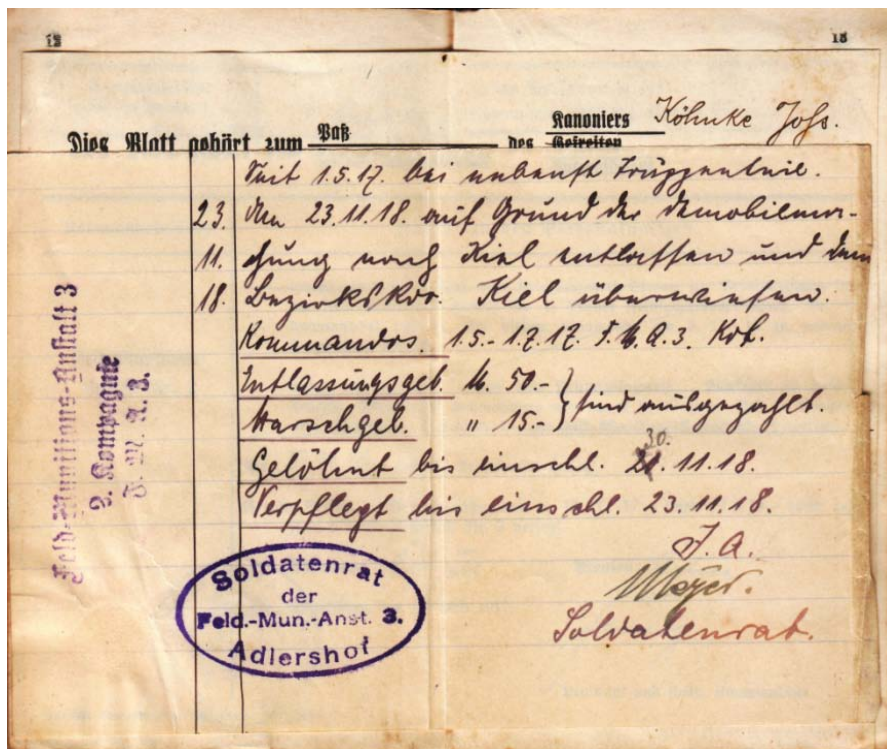 12
13
Dies Blatt gehört zum Paß des Kanoniers Köhnke Johs.
Gefreiten
Seit 1.5.17. bei nebenst Truppenteil.
23. Am 23.11.18. auf Grund der Demobilma-
11. chung nach Kiel entlassen und dem
18. Bezirkskdo. Kiel überwiesen.
Kommandos. 1.5.- 1.7.17. F.M.A.3.
Entlassungsgeb. M. 50.-
Marschgeb. " 15.- } sind ausgezahlt.
Gelöhnt bis einschl. 30. 11.18.
Verpflegt bis einschl. 23.11.18.
J.A.
Meyer.
Soldatenrat.
Feld-Munitions-Anstalt 3
2. Kompagnie
F. M. A. 3.
Soldatenrat
der
Feld.-Mun.-Anst. 3.
Adlershof